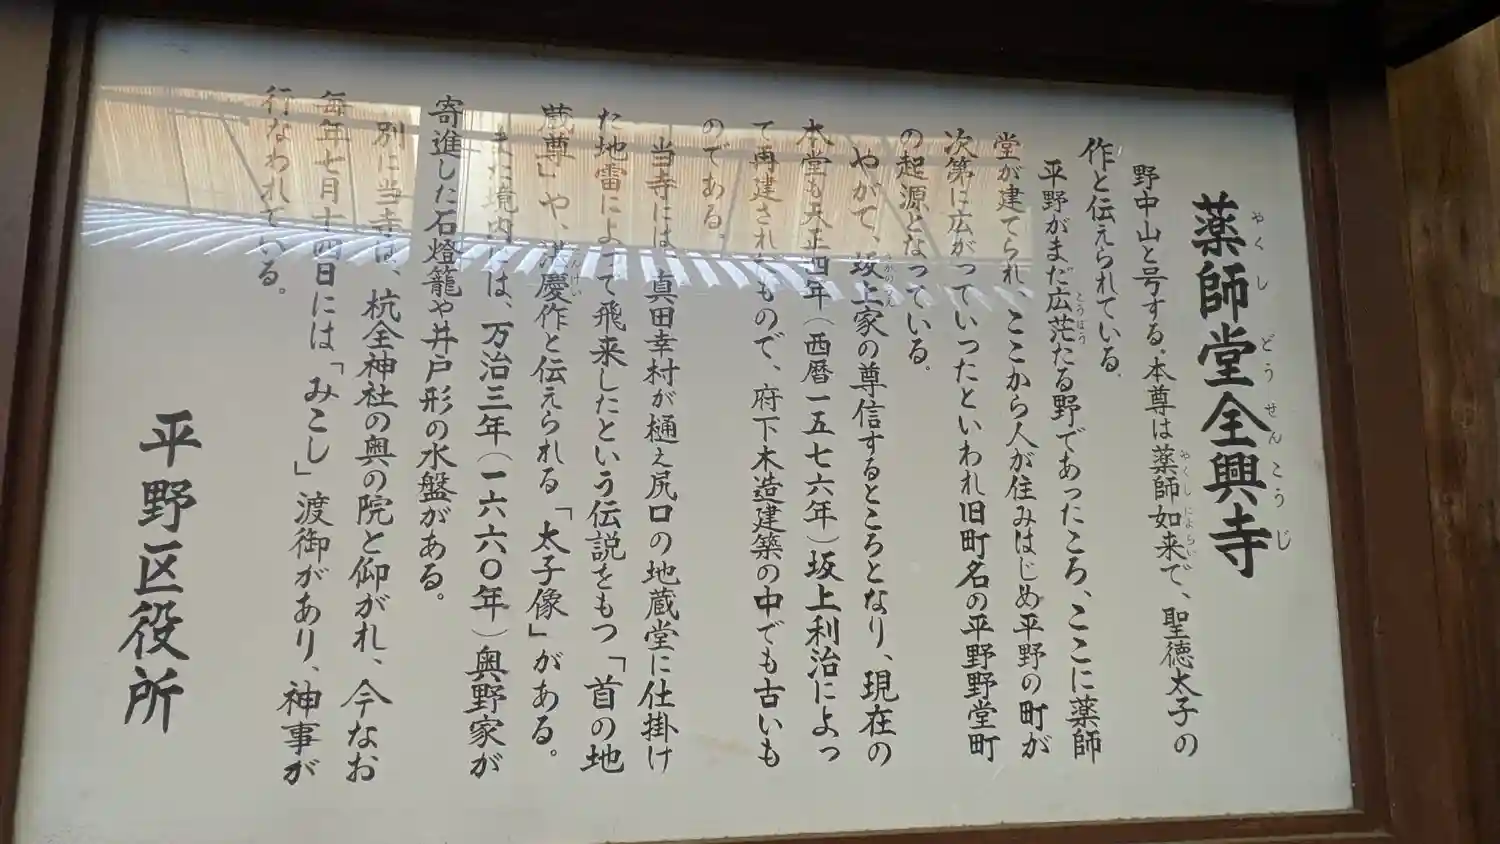 薬師堂全興寺
やくしどうせんこうじ
野中山と号する。本尊は薬師如来で、聖徳太子の
やくしにょらい
作と伝えられている。
平野がまだ広茫たる野であったころ、ここに薬師
こうぼう
堂が建てられ ここから人が住みはじめ平野の町が
次第に広がっていったといわれ旧町名の平野野堂町
の起源となっている。
やがて、坂上家の尊信するところとなり、現在の
本堂も天正四年（西暦一五七六年）坂上利治によっ
て再建されたもので、府下木造建築の中でも古いも
のである。
当寺には、真田幸村が樋え尻口の地蔵堂に仕掛け
た地雷によって飛来したという伝説をもつ「首の地
蔵尊」や、湛慶作と伝えられる「太子像」がある。
たんけい
また境内には、万治三年（一六六〇年）奥野家が
寄進した石燈籠や井戸形の水盤がある。
別に当寺は、杭全神社の奥の院と仰がれ、今なお
毎年七月十四日には「みこし」渡御があり、神事が
行なわれている。
平野区役所